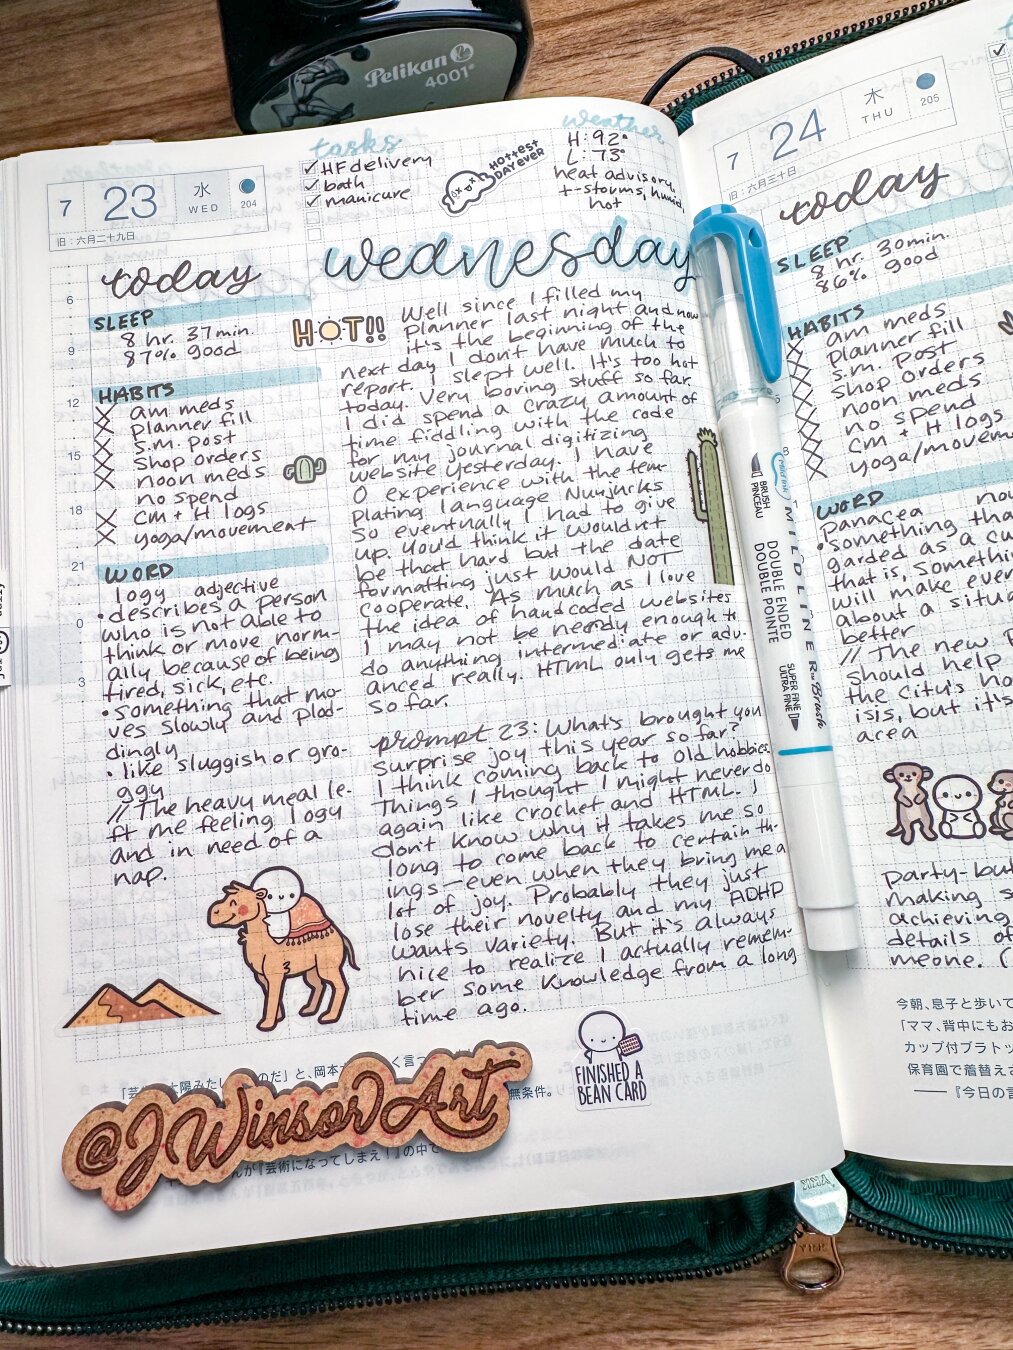 Pelikan
4001®
7
23
水
WED
204
旧：六月二十九日
tasks
✓ HF delivery
✓ bath
✓ manicure
HOTTEST
DAY EVER
weather
H: 92°
L: 73°
heat advisory,
t-storms, humid,
hot
today
wednesday
6
9
12
15
18
21
0
3
SLEEP
8 hr. 37min.
87% good
HABITS
X am meds
X planner fill
X s.m. post
X shop orders
X noon meds
no spend
X cm + H logs
X yoga/movement
WORD
logy adjective
• describes a person
who is not able to
think or move norm-
ally because of being
tired, sick, etc.
• something that mo-
ves slowly and plod-
dingly
• like sluggish or gro-
ggy
// The heavy meal le-
ft me feeling logy
and in need of a
nap.
HOT!!
Well since I filled my
planner last night and now
it's the beginning of the
next day I don't have much to
report. I slept well. It's too hot
today. Very boring stuff so far.
I did spend a crazy amount of
time fiddling with the code
for my journal digitizing
website yesterday. I have
0 experience with the tem-
plating language Nunjucks
so eventually I had to give
up. You'd think it wouldn't
be that hard but the date
formatting just would NOT
cooperate. As much as I love
the idea of handcoded websites
I may not be nerdy enough to
do anything intermediate or adv-
anced really. HTML only gets me
so far.
prompt 23: What's brought you
surprise joy this year so far?
I think coming back to old hobbies.
Things I thought I might never do
again like crochet and HTML. I
don't know why it takes me so
long to come back to certain th-
ings—even when they bring me a
lot of joy. Probably they just
lose their novelty and my ADHD
wants variety. But it's always
nice to realize I actually remem-
ber some knowledge from a long
time ago.
FINISHED A
BEAN CARD
@JWinsorArt
無条件。
が『芸術になってしまえ！』の中で
BRUSH
PINCEAU
MILDLINER Brush
DOUBLE ENDED
DOUBLE POINTE
SUPER FINE
ULTRA FINE
7
24
木
THU
205
旧：六月三十日
✓
today
SLEEP
8 hr. 30min.
86% good
HABITS
X am meds
X planner fill
X s.m. post
X shop orders
X noon meds
X no spend
X cm + H logs
X yoga/movem
WORD
panacea
• something tha
garded as a cu
that is, somethin
will make ever
about a situa
better
// The new
should help
the city's ho
isis, but it's
acea
party-but
making s
achieving
details of
meone.
今朝、息子と歩いて
「ママ、背中にもお
カップ付ブラトッ
保育園で着替え
——『今日の言
YKK